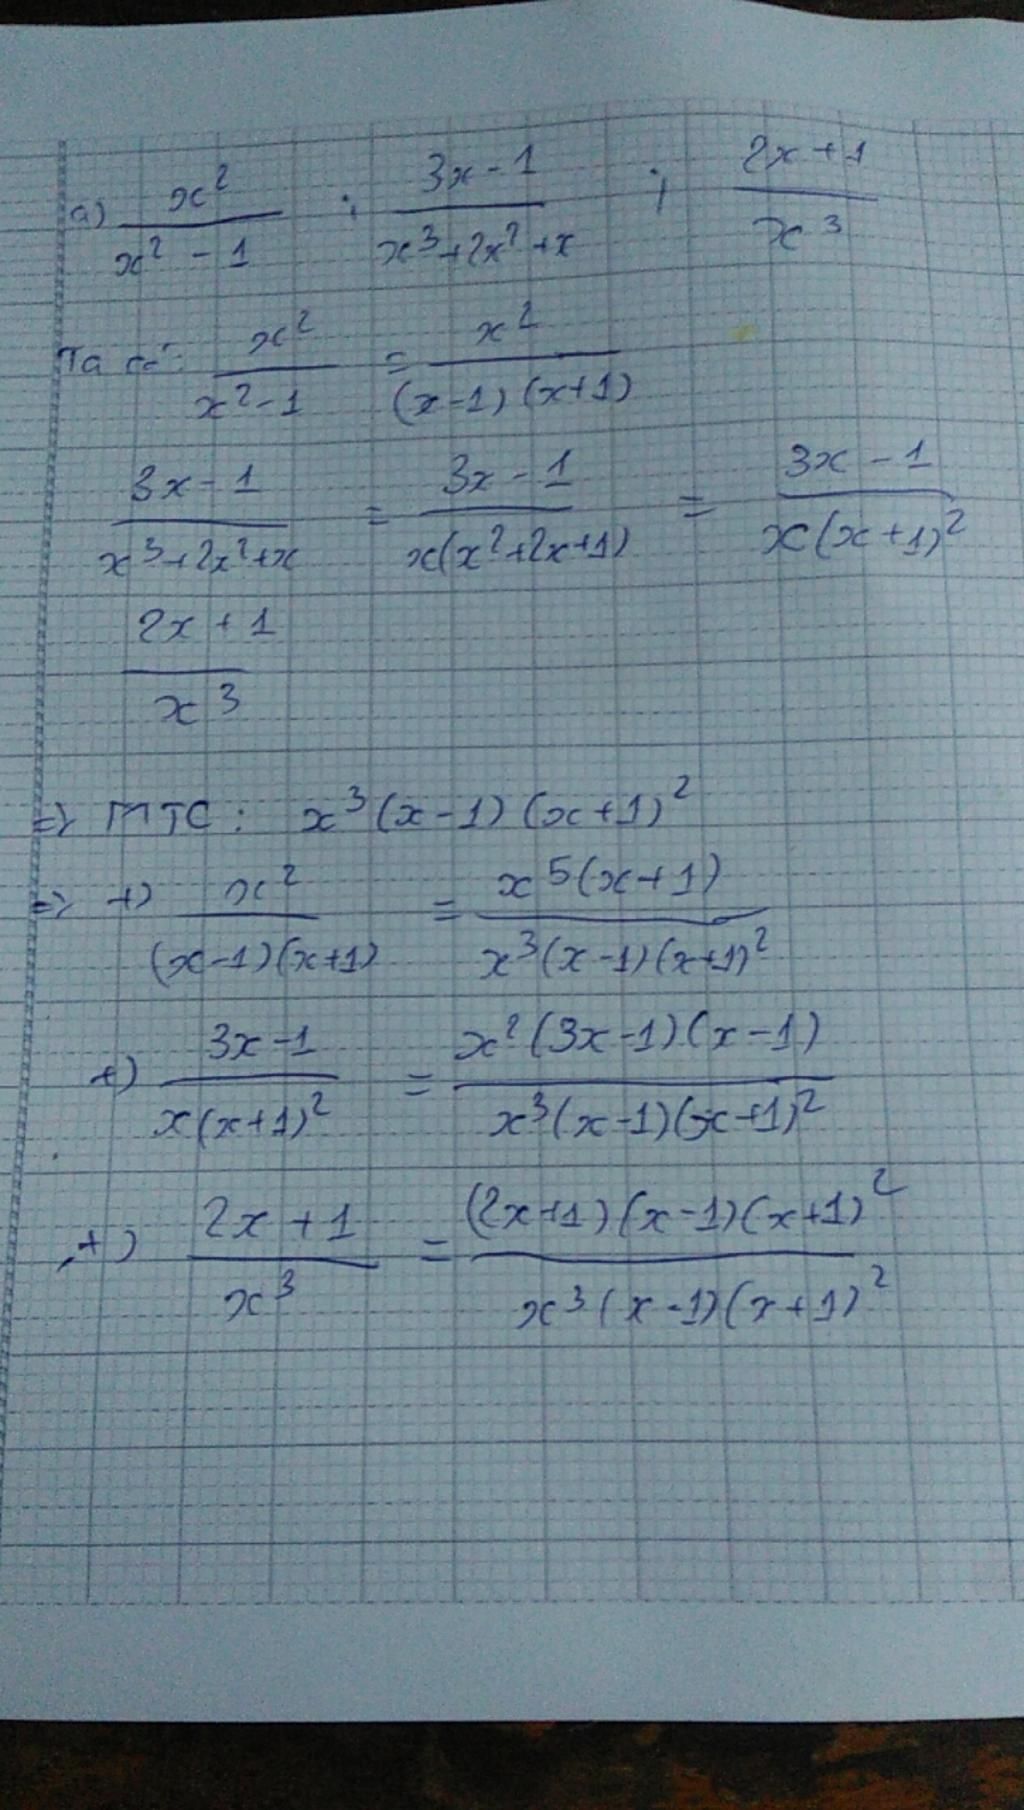 a) x²/(x² - 1) ; (3x - 1)/(x³ + 2x² + x) ; (2x + 1)/x³
Ta có: x²/(x² - 1) = x²/((x - 1)(x + 1))
(3x - 1)/(x³ + 2x² + x) = (3x - 1)/(x(x² + 2x + 1)) = (3x - 1)/(x(x + 1)²)
(2x + 1)/x³
=> MTC : x³(x - 1)(x + 1)²
=> +) x²/((x - 1)(x + 1)) = x⁵(x + 1)/(x³(x - 1)(x + 1)²)
+) (3x - 1)/(x(x + 1)²) = x²(3x - 1)(x - 1)/(x³(x - 1)(x + 1)²)
+) (2x + 1)/x³ = (2x + 1)(x - 1)(x + 1)²/(x³(x - 1)(x + 1)²)